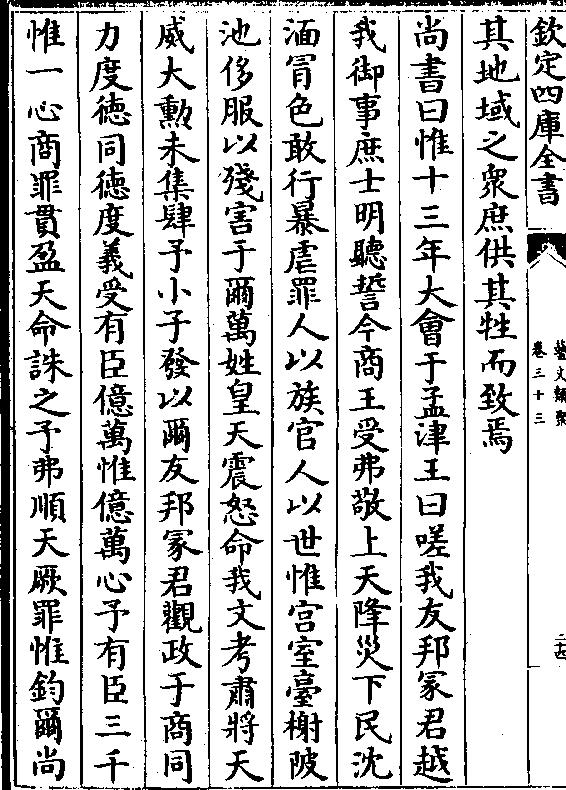 欽定四庫全書
藝文類聚
卷三十三
其地域之衆庶供其牲而致焉
尚書曰惟十三年大會于孟津王曰嗟我友邦冢君越
我御事庶士明聽誓今商王受弗敬上天降災下民沈
湎冐色敢行暴虐罪人以族官人以世惟宫室臺榭陂
池侈服以殘害于爾萬姓皇天震怒命我文考肅將天
威大勲未集肆予小子發以爾友邦冢君觀政于商同
力度德同德度義受有臣億萬惟億萬心予有臣三千
惟一心商罪貫盈天命誅之予弗順天厥罪惟鈞爾尚